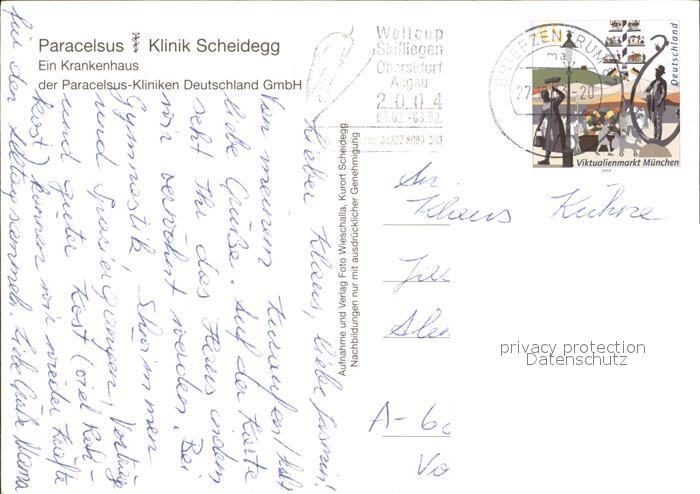 Paracelsus Klinik Scheidegg
Ein Krankenhaus
der Paracelsus-Kliniken Deutschland GmbH
Weltcup
Skifliegen
Oberstdorf
Allgäu
2004
BRIEFZENTRUM
Deutschland
Viktualienmarkt München
2003
Aufnahme und Verlag Foto Wieschalla, Kurort Scheidegg
Nachbildungen nur mit ausdrücklicher Genehmigung
Lieber Klaus, liebe Jasmin!
Von meinem Kuraufenthalt
liebe Grüße. Auf der Karte
seht Ihr das Haus indem
wir verwöhnt werden. Bei
Gymnastik, Schwimmen
und Spaziergängen, Vorträge
und guter Kost (viel Roh-
kost) können wir wieder Kräfte
für den Alltag sammeln. Liebe Grüße Mama
An
Klaus Kühne
A-
privacy protection
Datenschutz